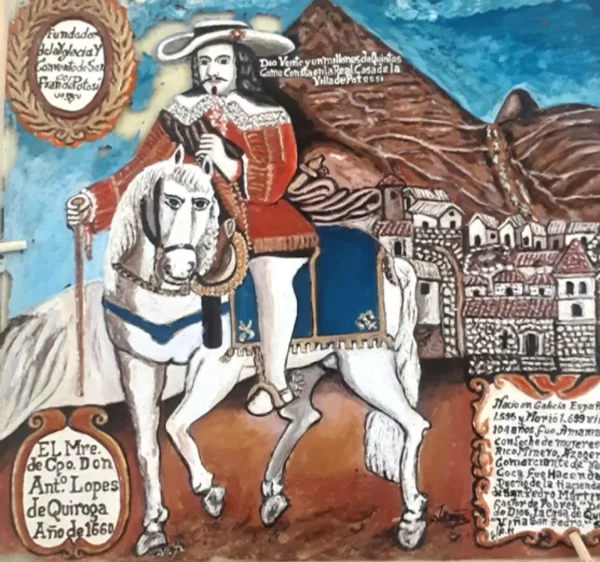 Fundador
de la Yglecia Y
Convento de San
co
Fran de Potosi
Dio Vente y un millones de Quintos
Como Consta en la Real Casa de la
Villa de Potossi
EL Mre.
de Cpo. Don
Antº Lopes
de Quiroga
Año de 1660
Nacio en Galicia Españ
1595 y Murio 1.699 vi
104 años, fue Amaman
con Leche de mujeres
Rico Minero, Azoger
Comerciante de
Coca fue Hacenda
Dueño de la Hacienda
de San Pedro Mártir
Factor de Pobres,
de Dios, La Casa de Qu
Viña San Pedro."